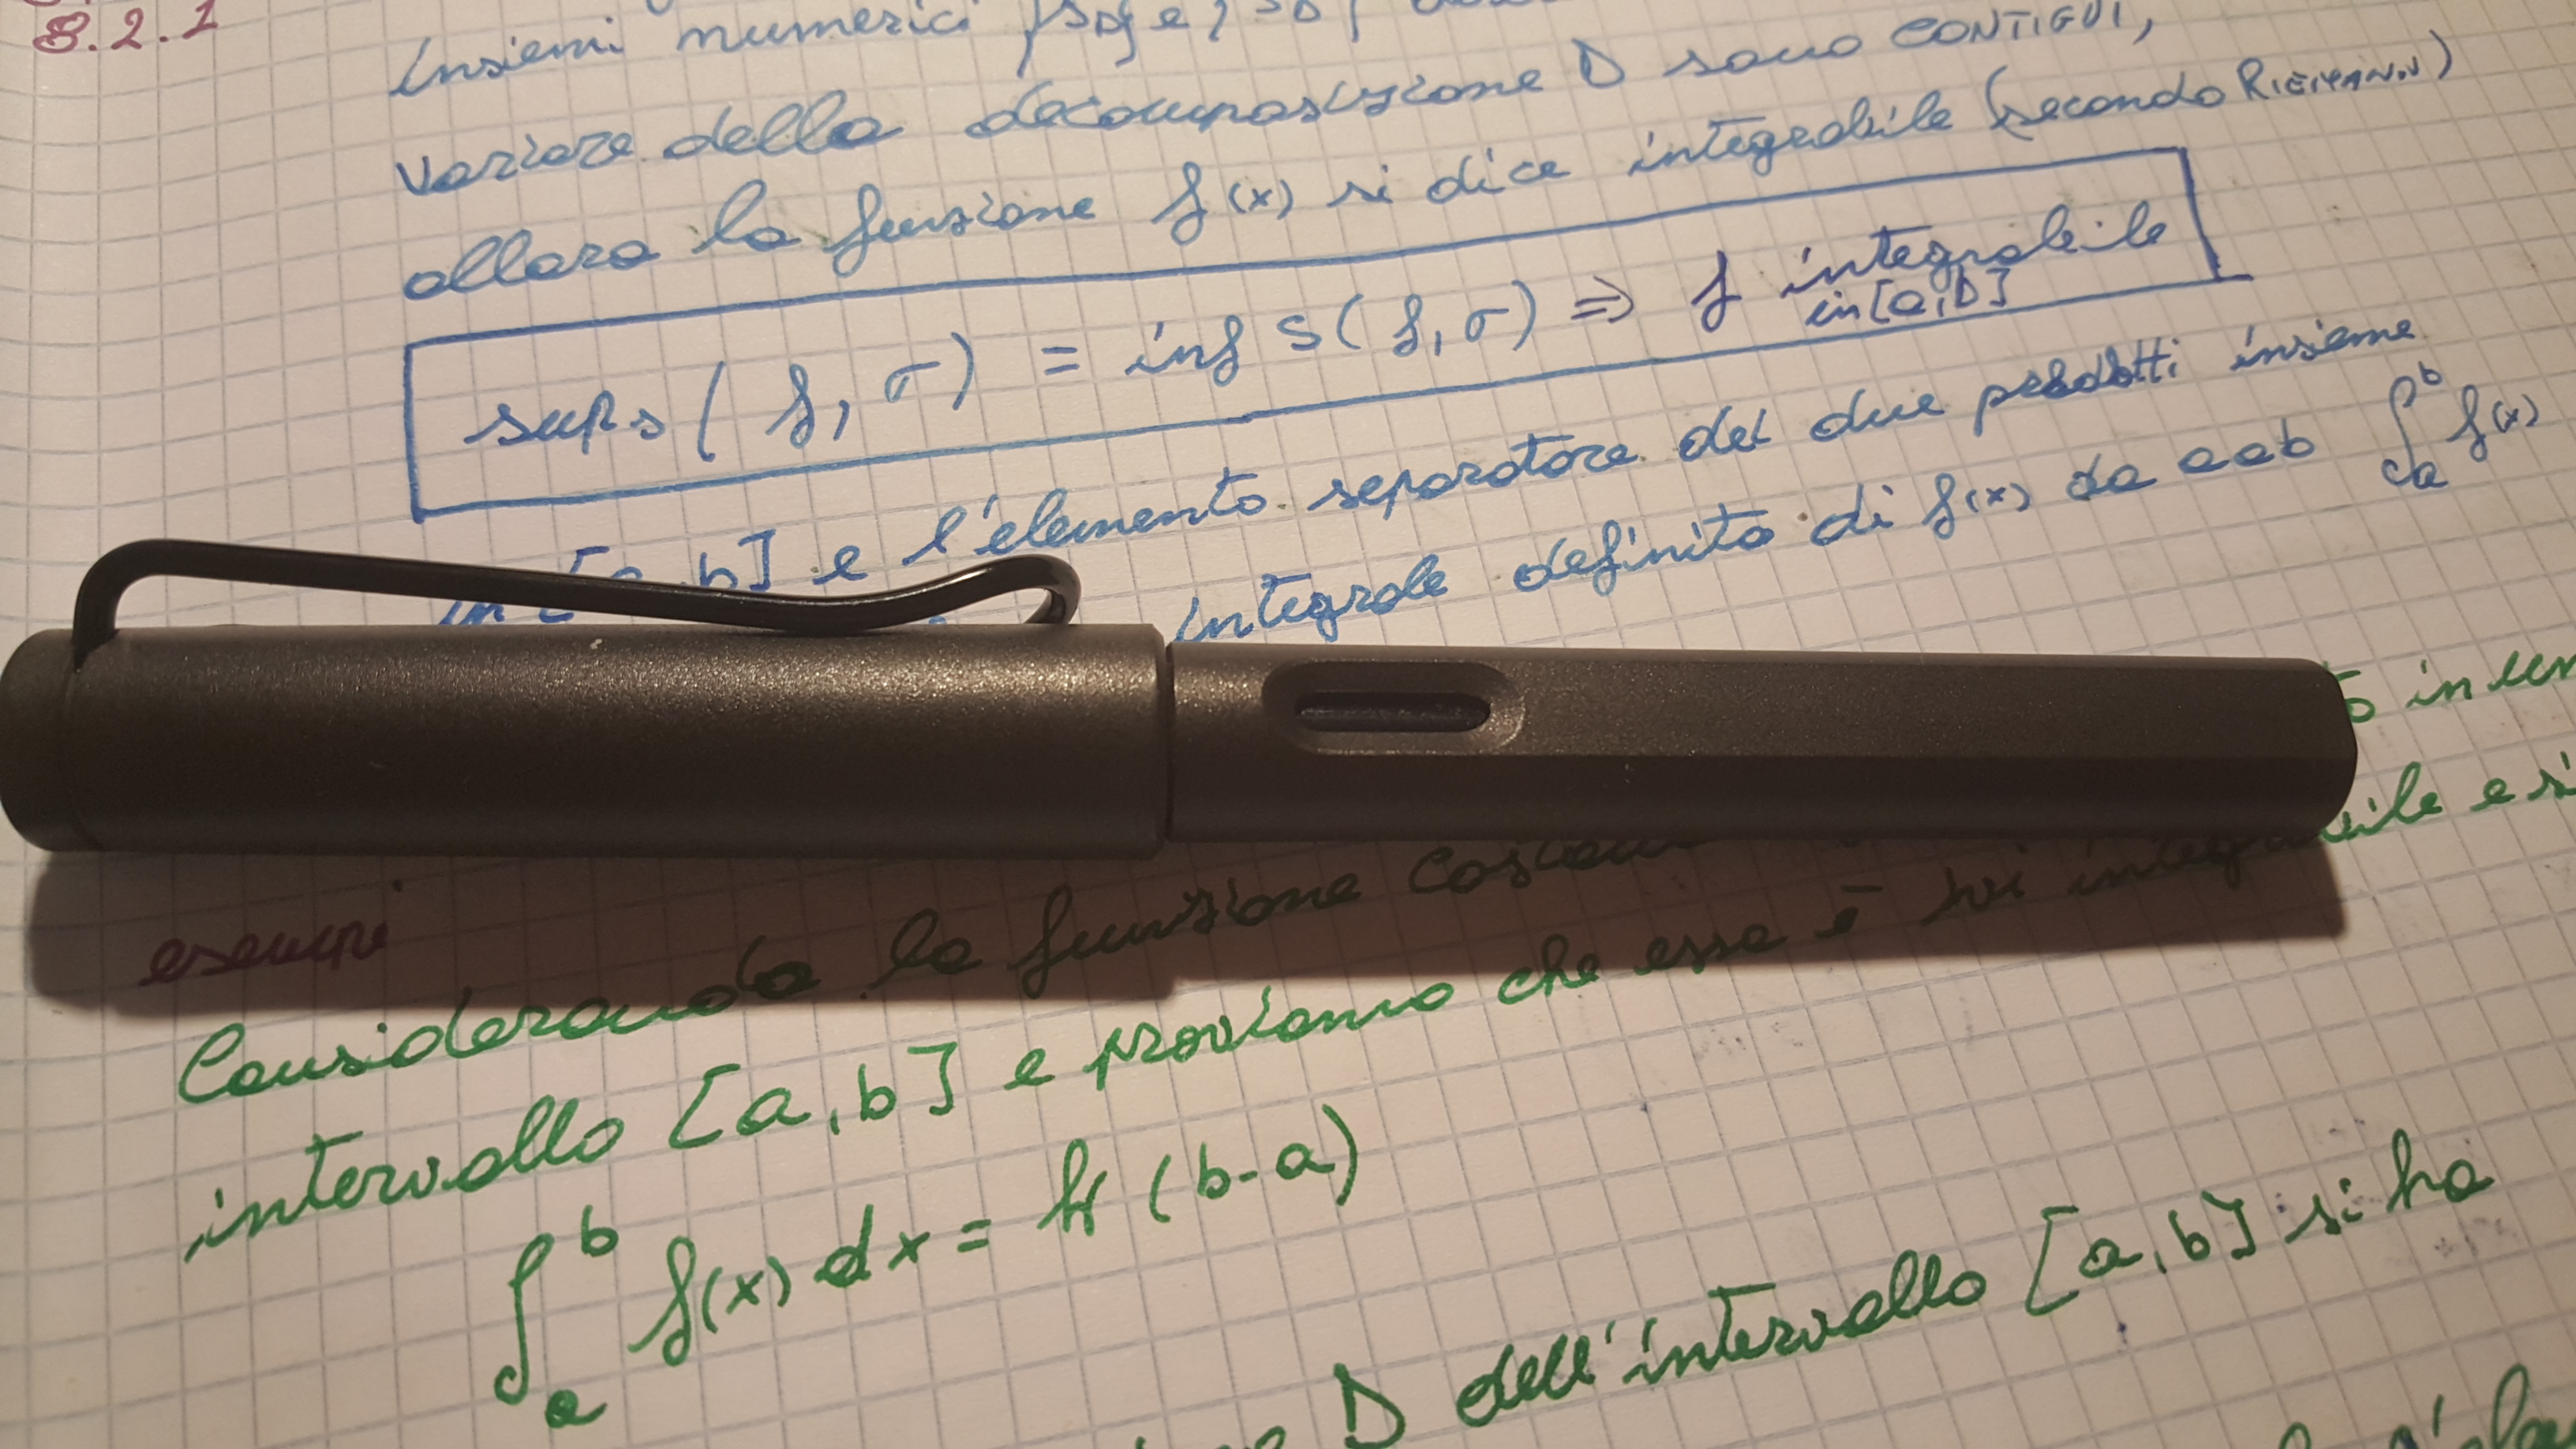 8.2.1
insiemi numerici
variare della decomposizione D sono CONTIGUI,
allora la funzione f(x) si dice integrabile (secondo RIEMANN)
sup s ( f, σ ) = inf S ( f, σ ) ⇒ f integrabile
in [a,b]
in [a,b] e l'elemento separatore dei due predotti insieme
integrale definito di f(x) da a a b ∫ₐᵇ f(x)
in un
esempi
Considerando la funzione
intervallo [a,b] e proviamo che essa è ivi integrabile e si
∫ₐᵇ f(x) dx = k (b-a)
D dell'intervallo [a,b] si ha